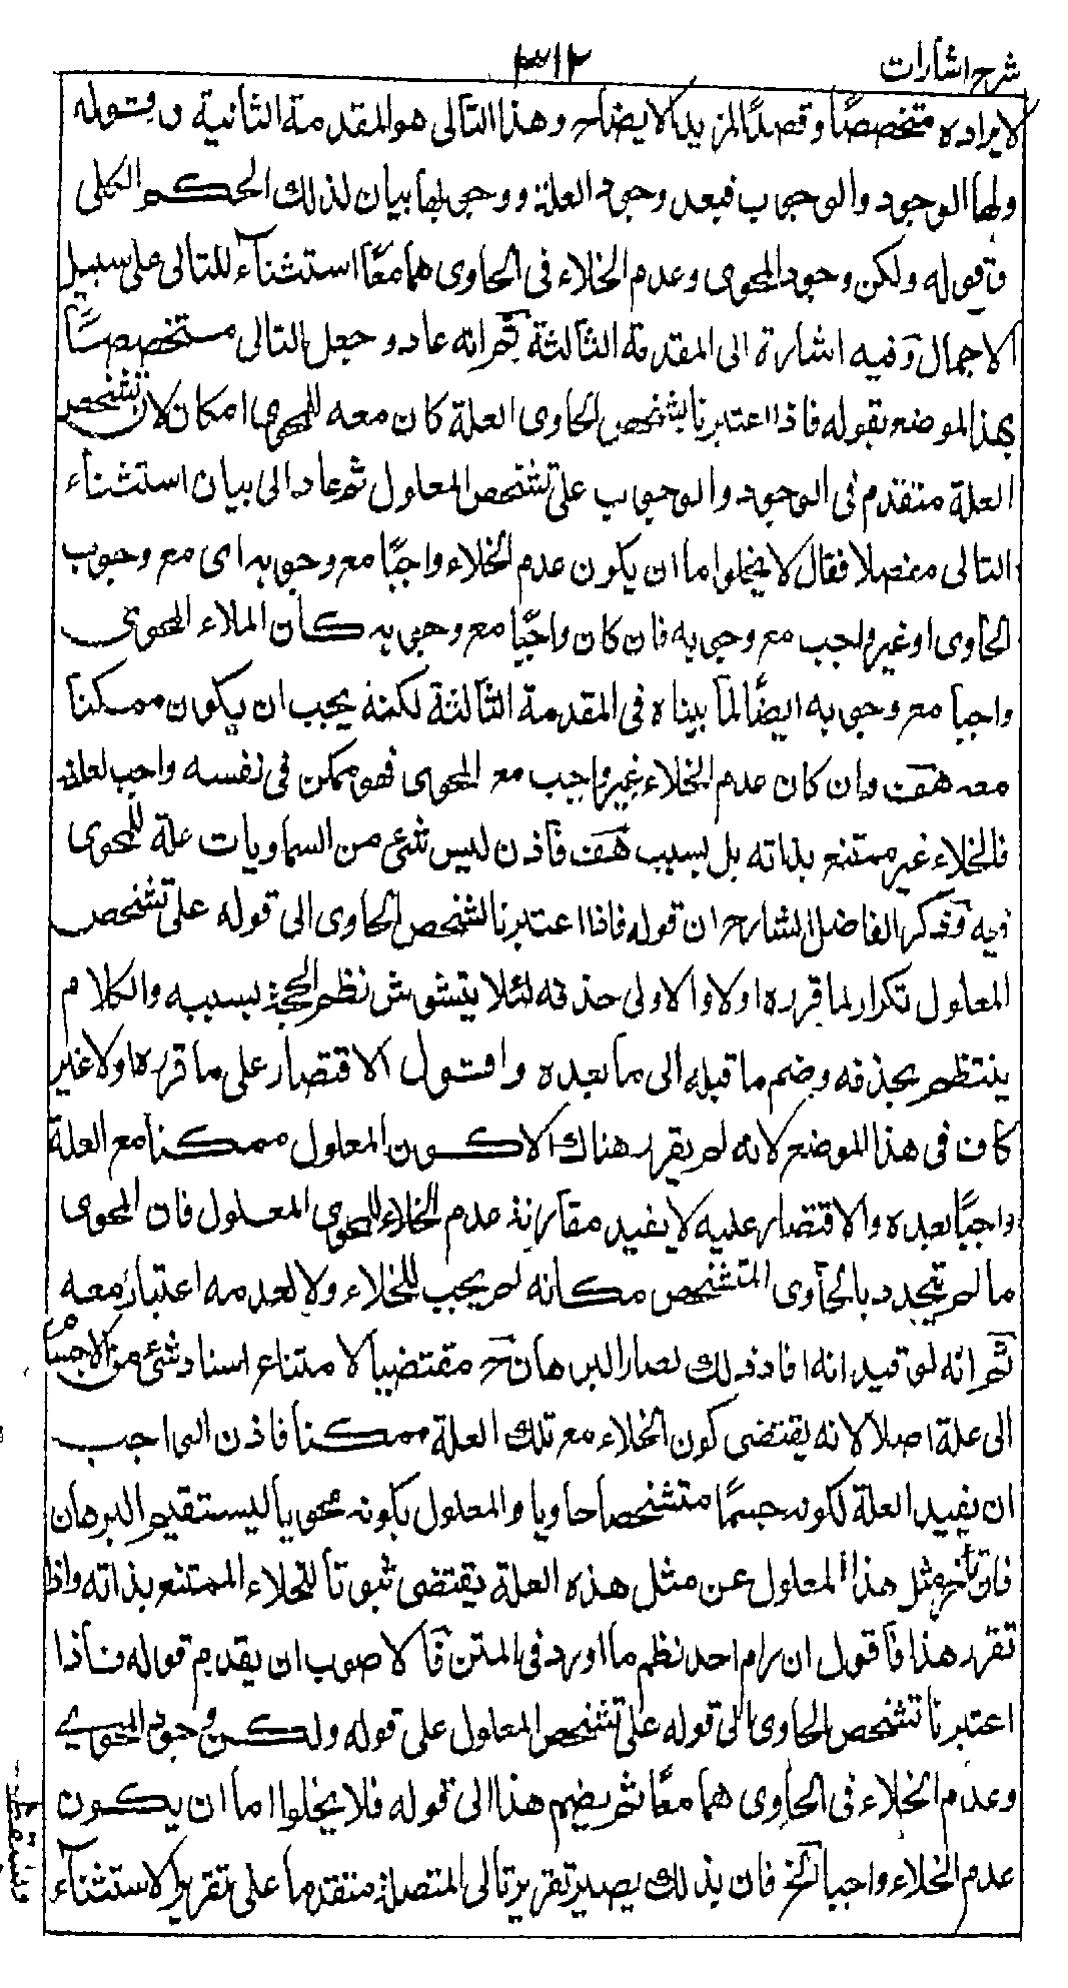 شرح اشارات
٣١٢
لايراده متخصصًا وقصدًا لمزيد الايضاح وهذا التالى هو المقدمة الثانية وقوله
ولها الوجود والوجوب فبعد وجود العلة ووجوبها بيان لذلك الحكم الكلى
وقوله ولكن وجود المحوى وعدم الخلاء فى الحاوى هما معًا استثناء للتالى على سبيل
الاجمال وفيه اشارة الى المقدمة الثالثة ثم انه عاد وجعل التالى متخصصًا
بهذا الموضع بقوله فاذا اعتبرنا تشخص الحاوى العلة كان معه للمحوى امكان لان تشخص
العلة متقدم فى الوجود والوجوب على تشخص المعلول ثم عاد الى بيان استثناء
التالى مفصلا فقال لا يخلوا اما ان يكون عدم الخلاء واجبًا مع وجوبه اى مع وجوب
الحاوى او غير واجب مع وجوبه فان كان واجبًا مع وجوبه كان الملاء المحوى
واجبا مع وجوبه ايضًا لما بيناه فى المقدمة الثالثة لكنه يجب ان يكون ممكنا
معه هف وان كان عدم الخلاء غير واجب مع المحوى فهو ممكن فى نفسه واجب لعلة
فالخلاء غير ممتنع بذاته بل بسبب هف فاذن ليس شئ من السماويات علة للمحوى
فيه وذكر الفاضل الشارح ان قوله فاذا اعتبرنا تشخص الحاوى الى قوله على تشخص
المعلول تكرار لما قرره اولا والاولى حذفه لئلا يتشوش نظم الحجة بسببه والكلام
ينتظم بحذفه وضم ما قبله الى ما بعده واقول الاقتصار على ما قرره اولا غير
كاف فى هذا الموضع لانه لم يقرر هناك الا كون المعلول ممكنا مع العلة
واجبًا بعده والاقتصار عليه لا يفيد مقارنة عدم الخلاء للمحوى المعلول فان المحوى
ما لم يتحدد بالحاوى المتشخص مكانه لم يجب للخلاء ولا لعدمه اعتبار معه
ثم انه لو قيد انه افاد ذلك لصار البرهان ح مقتضيا لامتناع اسناد شئ من الاجسام
الى علة اصلا لانه يقتضى كون الخلاء مع تلك العلة ممكنا فاذن الواجب
ان يفيد العلة لكونه جسمًا متشخصا حاويا والمعلول بكونه محويا ليستقيم البرهان
فان تاخر مثل هذا المعلول عن مثل هذه العلة يقتضى ثبوتا للخلاء الممتنع بذاته واذا
تقرر هذا فاقول ان رام احد نظم ما اورد فى المتن فالاصوب ان يقدم قوله فاذا
اعتبرنا تشخص الحاوى الى قوله على تشخص المعلول على قوله ولكن وجود المحوى
وعدم الخلاء فى الحاوى هما معًا ثم يضم هذا الى قوله فلا يخلوا اما ان يكون
عدم الخلاء واجبا الخ فان بذلك يصير تقرير تالى المتصلة متقدما على تقرير الاستثناء